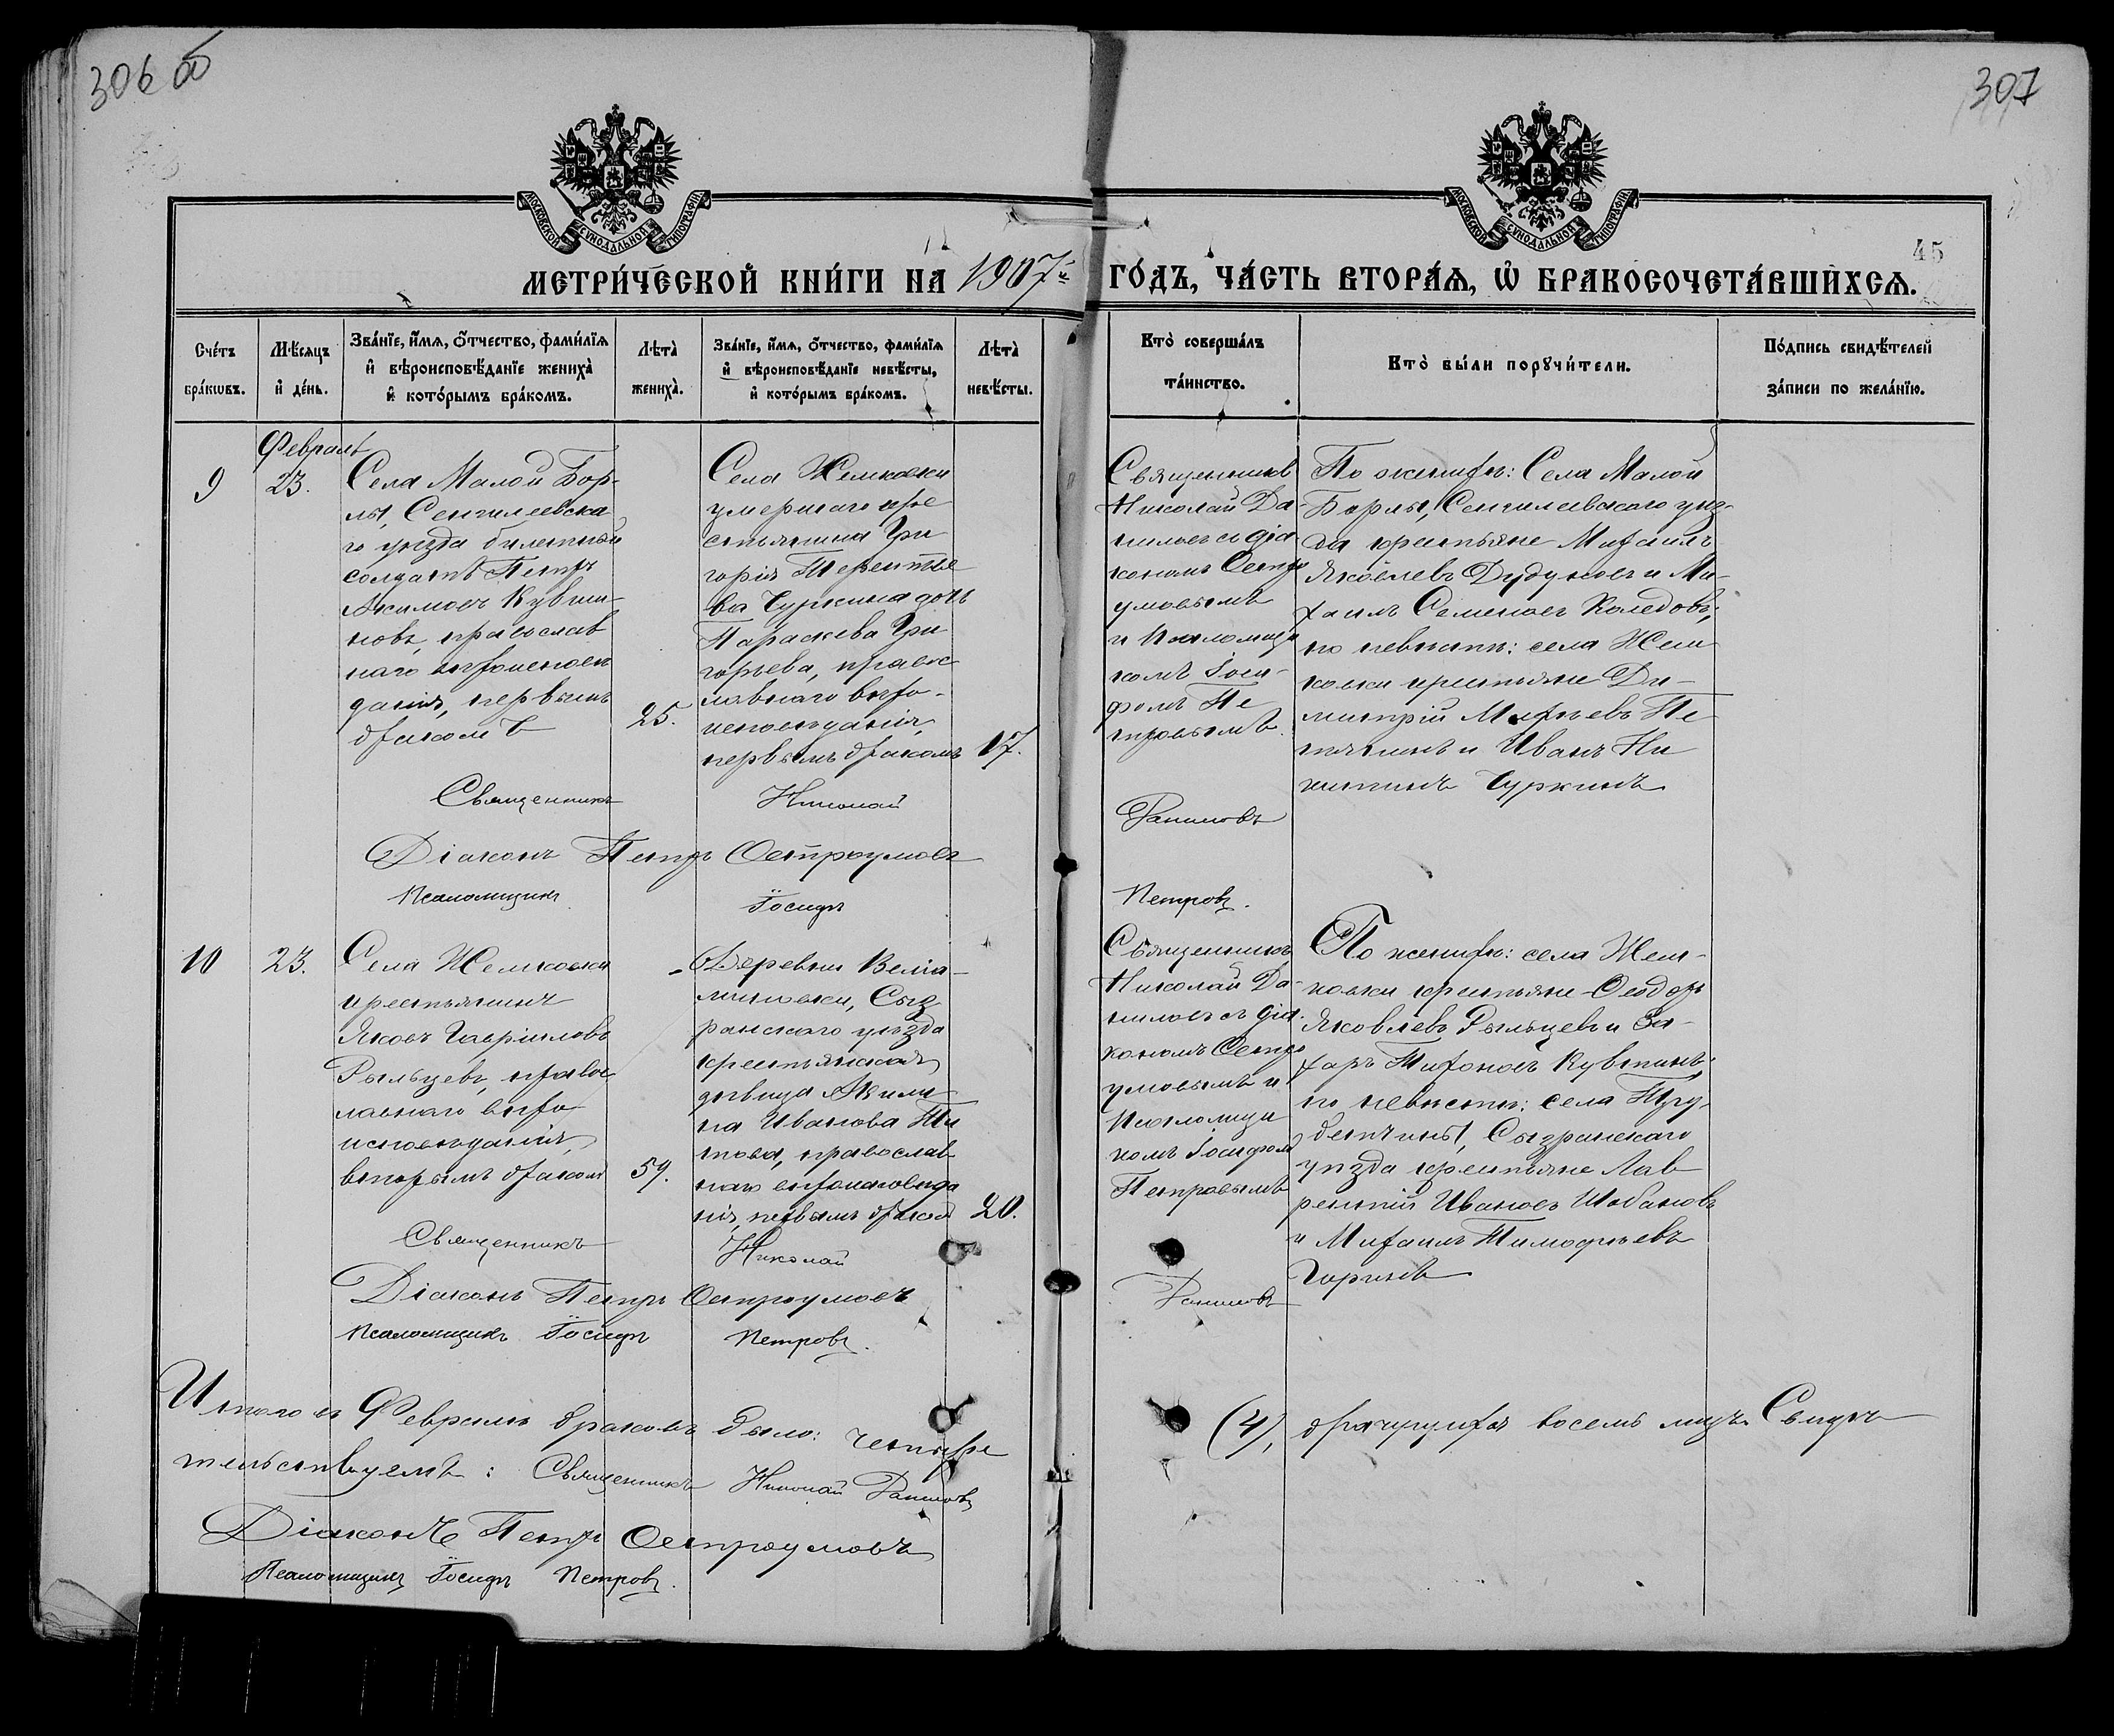 306 об
307
45
МОСКОВСКОЙ СУНОДАЛЬНОЙ ТИПОГРАФІИ
МОСКОВСКОЙ СУНОДАЛЬНОЙ ТИПОГРАФІИ
МЕТРИ́ЧЕСКОЙ КНИ́ГИ НА 1907 й
ГО́ДЪ, ЧА́СТЬ ВТОРА́Ѧ, Ѽ БРАКОСОЧЕТА́ВШИХСѦ.
Сче́тъ бра́кѡвъ.
Мѣ́сѧцъ и҆ де́нь.
Зва́нїе, и҆́мѧ, ѻ҆́тчество, фами́лїѧ
и҆ вѣроисповѣ́данїе жениха̀
и҆ кото́рымъ бра́комъ.
Лѣта̀ жениха̀.
Зва́нїе, и҆́мѧ, ѻ҆́тчество, фами́лїѧ
и҆ вѣроисповѣ́данїе невѣ́сты,
и҆ кото́рымъ бра́комъ.
Лѣта̀ невѣ́сты.
Кто̀ соверша́лъ
та́инство.
Кто̀ бы́ли порꙋчи́тели.
По́дпись свидѣ́телей
за́писи по жела́нїю.
Февраль
9
23.
Села Малой Бор-
лы, Сенгилеевска
го уѣзда билетный
солдатъ Петръ
Акимовъ Кувши-
новъ, православ
наго вѣроисповѣ
данія, первымъ
бракомъ
25.
Села Жемковки
умершаго кре
стьянина Гри
горія Терентье
ва Чуркина дочь
Параскева Гри
горьева, правос
лавнаго вѣро-
исповѣданія,
первымъ бракомъ
17.
Священникъ
Николай Да-
ниловъ съ діа
кономъ Остро
умовымъ
и псаломщи
комъ Іоси-
фомъ Пе
тровымъ.
По женихѣ: Села Малой
Борлы, Сенгилеевскаго уѣз-
да крестьяне Михаилъ
Яковлевъ Дудуковъ и Ми-
хаилъ Семеновъ Коледовъ;
по невѣстѣ: села Жем
ковки крестьяне Ди-
митрій Матвеевъ Пе
тяшинъ и Иванъ Ни
китинъ Чуркинъ
Священникъ Николай Даниловъ
Діаконъ Петръ Остроумовъ
Псаломщикъ Іосифъ Петровъ.
10
23.
Села Жемковки
крестьянинъ
Яковъ Гавріиловъ
Рыльцевъ, правос
лавнаго вѣро
исповѣданія,
вторымъ бракомъ
59.
Деревни Веліа-
миновки, Сыз
ранскаго уѣзда
крестьянская
дѣвица Акили
на Иванова Ти
това, православ
наго вѣроисповѣда
нія, первымъ бракомъ
20.
Священникъ
Николай Да-
ниловъ съ діа
кономъ Остро
умовымъ и
псаломщи
комъ Іосифомъ
Петровымъ
По женихѣ: села Жем-
ковки крестьяне Ѳеодоръ
Яковлевъ Рыльцевъ и За-
харъ Тихоновъ Кувшинъ;
по невѣстѣ: села Тру
бетчины, Сызранскаго
уѣзда крестьяне Лав
рентій Ивановъ Шобановъ
и Михаилъ Тимофѣевъ
Горинъ
Священникъ Николай Даниловъ
Діаконъ Петръ Остроумовъ
Псаломщикъ Іосифъ Петровъ.
Итого въ Февралѣ браковъ было: четыре (4), брачущихся восемь лицъ. Свидѣ
тельствуемъ: Священникъ Николай Даниловъ
Діаконъ Петръ Остроумовъ
Псаломщикъ Іосифъ Петровъ.